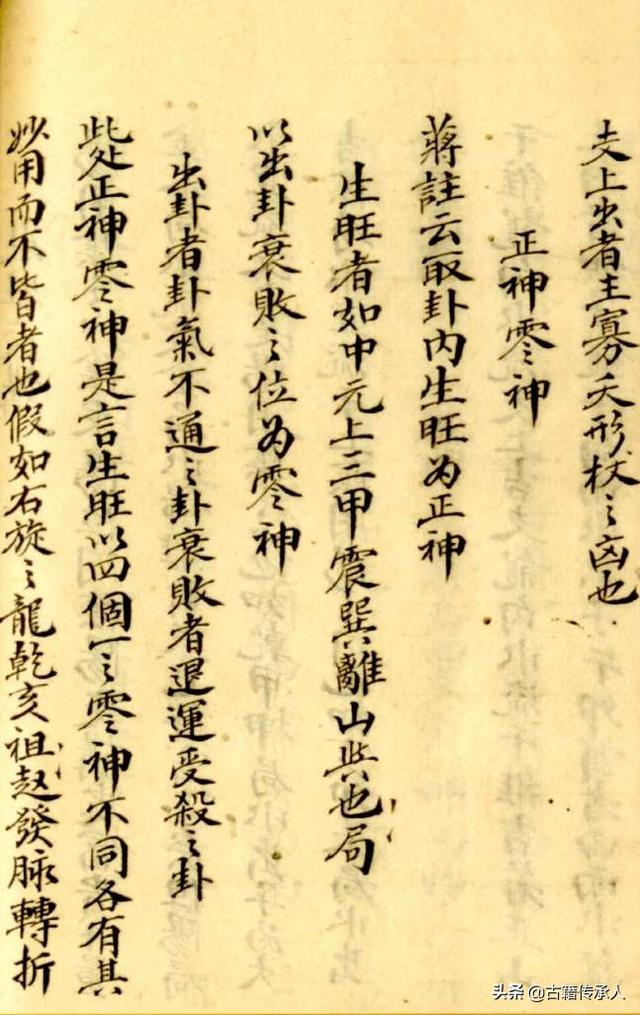 爻上出者主寡夭形杖之凶也
正神零神
蔣註云取卦内生旺为正神
生旺者如中元上三甲震巽離山與也局
以出卦衰敗之位为零神
出卦者卦氣不通之卦衰敗者退運受殺之卦
此处正神零神是言生旺以四個一之零神不同各有其
妙用而不皆者也假如右旋之龍乾亥祖起發脉轉折
头条 @古籍传承人